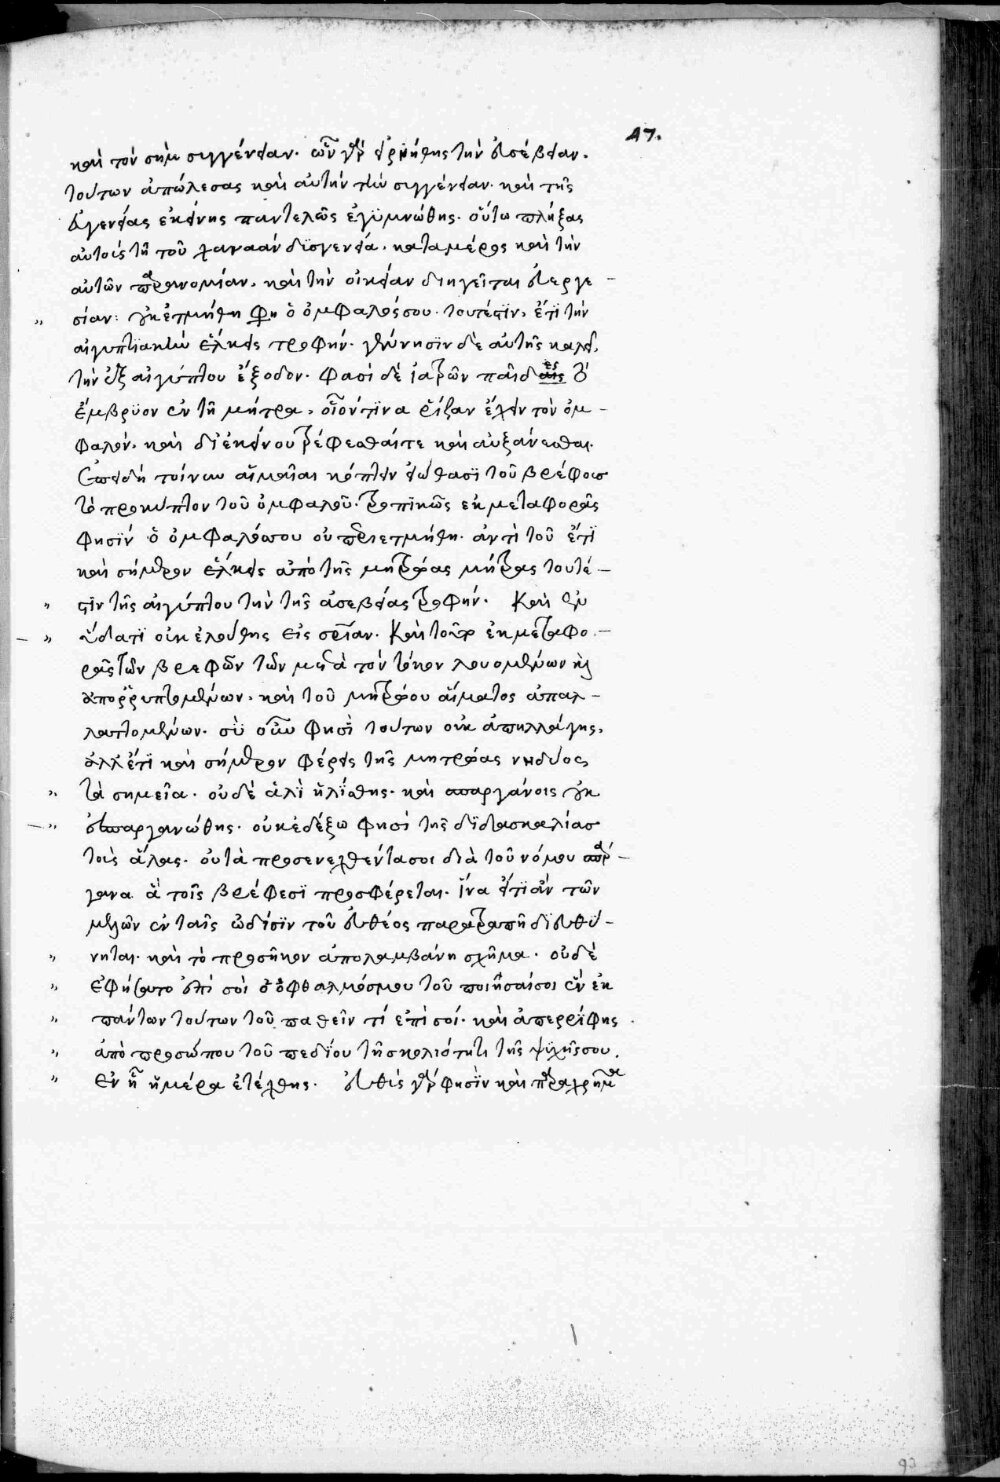 47.
καὶ τὸν σὴμ συγγένειαν. ὧν γὰρ ἠρνήθης τὴν εὐσέβειαν.
τούτων ἀπώλεσας καὶ αὐτὴν τὴν συγγένειαν. καὶ τῆς
εὐγενείας ἐκείνης παντελῶς ἐγυμνώθης. οὕτω πλήξας
αὐτοὺς τῆ τοῦ χαναὰν δυσγενεία. καταμέρος καὶ τὴν
αὐτῶν παρανομίαν. καὶ τὴν οἰκείαν διηγεῖται εὐεργε-
„ σίαν: οὐκ ἐτμήθη φη ὁ ὀμφαλός σου. τουτέστιν, ἔτι τὴν
αἰγυπτιακὴν ἕλκεις τροφήν. γέννησϊν δὲ αὐτῆς καλεῖ,
τὴν ἐξ αἰγύπτου ἔξοδον. φασὶ δὲ ἰατρῶν παῖδες τὸ
ἔμβρϋον ἐν τῆ μήτρα, οἷον τϊνα ῥίζαν ἔχειν τὸν ὀμ-
φαλόν. καὶ δι' ἐκείνου τρέφεσθαί τε καὶ αὐξάνεσθαι.
Ἐπειδὴ τοίνυν αἱ μαῖαι κόπτειν εἰώθασϊ τοῦ βρέφους
τὸ προκύπτον τοῦ ὀμφαλοῦ. τροπϊκῶς ἐκ μεταφορᾶς
φησϊν ὁ ὀμφαλός σου οὐ περιετμήθη. ἀντὶ τοῦ ἔτϊ
καὶ σήμερον ἕλκεις ἀπὸ τῆς μητρώας μήτρας τουτέ-
„ στϊν τῆς αἰγύπτου τὴν τῆς ἀσεβείας τροφήν. Καὶ ἐν
– „ ὕδατϊ οὐκ ἐλούθης εἰς σωτηρίαν. Καὶ τοῦτο ἐκ μεταφο-
ρᾶς τῶν βρεφῶν τῶν μετὰ τὸν τόκον λουομένων καὶ
ἀπορρυπτομένων. καὶ τοῦ μητρώου αἵματος ἀπαλ-
λαττομένων. σὺ οὖν φησὶ τούτων οὐκ ἀπηλλάγης,
ἀλλ' ἔτϊ καὶ σήμερον φέρεις τῆς μητρώας νηδύος
„ τὰ σημεῖα. οὐδὲ ἁλὶ ἡλίσθης. καὶ σπαργάνοις οὐκ
– „ ἐσπαργανώθης. οὐκ ἐδέξω φησὶ τῆς διδασκαλίας
τοὺς ἅλας. οὐ τὰ προσενεχθέντα σοι διὰ τοῦ νόμου σπάρ-
γανα ἃ τοῖς βρέφεσϊ προσφέρεται. ἵνα εἴ τϊ ἂν τῶν
μελῶν ἐν ταῖς ὠδίσϊν τοῦ εὐθέος παρατραπῆ διευθύ-
„ νηται. καὶ τὸ προσῆκον ἀπολαμβάνη σχῆμα. οὐδὲ
„ ἐφείσατο ἐπὶ σοὶ ὁ ὀφθαλμός μου τοῦ ποιῆσαί σοι ἓν ἐκ
„ πάντων τούτων τοῦ παθεῖν τί ἐπὶ σοί. καὶ ἀπερρίφης
„ ἀπὸ προσώπου τοῦ πεδίου τῆ σκολιότητι τῆς ψυχῆς σου.
„ ἐν ἧ ἡμέρα ἐτέχθης. εὐθὺς γάρ φησϊν καὶ παραχρῆμα